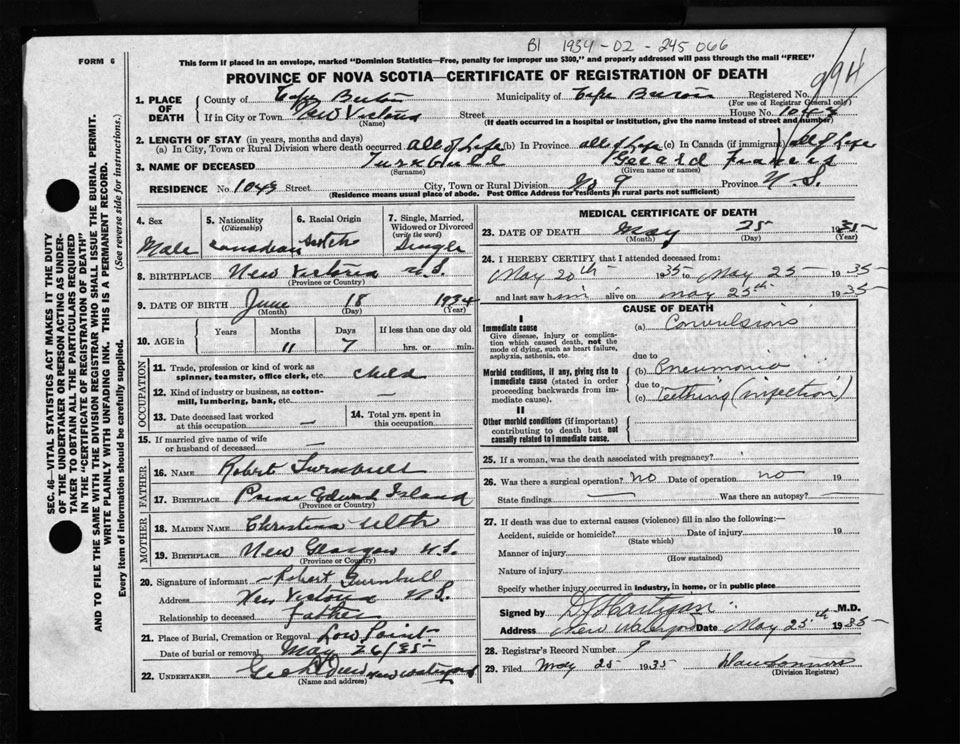 B1 1934-02-245066
FORM 6
This form if placed in an envelope, marked "Dominion Statistics—Free, penalty for improper use $300," and properly addressed will pass through the mail "FREE"
PROVINCE OF NOVA SCOTIA—CERTIFICATE OF REGISTRATION OF DEATH
1. PLACE OF DEATH County of Cape Breton Municipality of Cape Breton Registered No.
(For use of Registrar General only)
If in City or Town New Victoria Street House No. 1043
(Name) (If death occurred in a hospital or institution, give the name instead of street and number)
2. LENGTH OF STAY (in years, months and days)
(a) In City, Town or Rural Division where death occurred all of Life (b) In Province all of Life (c) In Canada (if immigrant) all of Life
3. NAME OF DECEASED Turnbull Gerard Francis
(Surname) (Given name or names)
RESIDENCE No. 1043 Street City, Town or Rural Division No 9 Province N.S.
(Residence means usual place of abode. Post Office Address for residents in rural parts not sufficient)
4. Sex 5. Nationality (Citizenship) 6. Racial Origin 7. Single, Married, Widowed or Divorced (write the word)
Male Canadian Scotch Single
8. BIRTHPLACE New Victoria N.S.
(Province or Country)
9. DATE OF BIRTH June 18 1934
(Month) (Day) (Year)
10. AGE in Years Months Days If less than one day old
11 7 hrs. or min.
OCCUPATION
11. Trade, profession or kind of work as spinner, teamster, office clerk, etc. child
12. Kind of industry or business, as cotton-mill, lumbering, bank, etc. —
13. Date deceased last worked at this occupation — 14. Total yrs. spent in this occupation
15. If married give name of wife or husband of deceased —
FATHER
16. NAME Robert Turnbull
17. BIRTHPLACE Prince Edward Island
(Province or Country)
MOTHER
18. MAIDEN NAME Christina
19. BIRTHPLACE New Glasgow N.S.
(Province or Country)
20. Signature of informant Robert Turnbull
Address New Victoria N.S.
Relationship to deceased Father
21. Place of Burial, Cremation or Removal Low Point
Date of burial or removal May 26/35
22. UNDERTAKER New Waterford
(Name and address)
MEDICAL CERTIFICATE OF DEATH
23. DATE OF DEATH May 25 1935
(Month) (Day) (Year)
24. I HEREBY CERTIFY that I attended deceased from:
May 20th 1935 to May 25 1935
and last saw him alive on May 25th 1935
CAUSE OF DEATH
I
Immediate cause (a) Convulsions
Give disease, injury or complication which caused death, not the mode of dying, such as heart failure, asphyxia, asthenia, etc.
due to
Morbid conditions, if any, giving rise to immediate cause (stated in order proceeding backwards from immediate cause). (b) Pneumonia
due to
(c) teething (infection)
II
Other morbid conditions (if important) contributing to death but not causally related to immediate cause.
25. If a woman, was the death associated with pregnancy?
26. Was there a surgical operation? no Date of operation no 19
State findings — Was there an autopsy? —
27. If death was due to external causes (violence) fill in also the following:—
Accident, suicide or homicide? Date of injury 19
(State which)
Manner of injury
(How sustained)
Nature of injury
Specify whether injury occurred in industry, in home, or in public place
Signed by D J Hartigan M.D.
Address New Waterford Date May 25th 1935
28. Registrar's Record Number 9
29. Filed May 25 1935
(Division Registrar)
SEC. 46—VITAL STATISTICS ACT MAKES IT THE DUTY
OF THE UNDERTAKER OR PERSON ACTING AS UNDER-
TAKER TO OBTAIN ALL THE PARTICULARS REQUIRED
IN THE "CERTIFICATE OF REGISTRATION OF DEATH"
AND TO FILE THE SAME WITH THE DIVISION REGISTRAR WHO SHALL ISSUE THE BURIAL PERMIT.
WRITE PLAINLY WITH UNFADING INK. THIS IS A PERMANENT RECORD.
Every item of information should be carefully supplied. (See reverse side for instructions.)